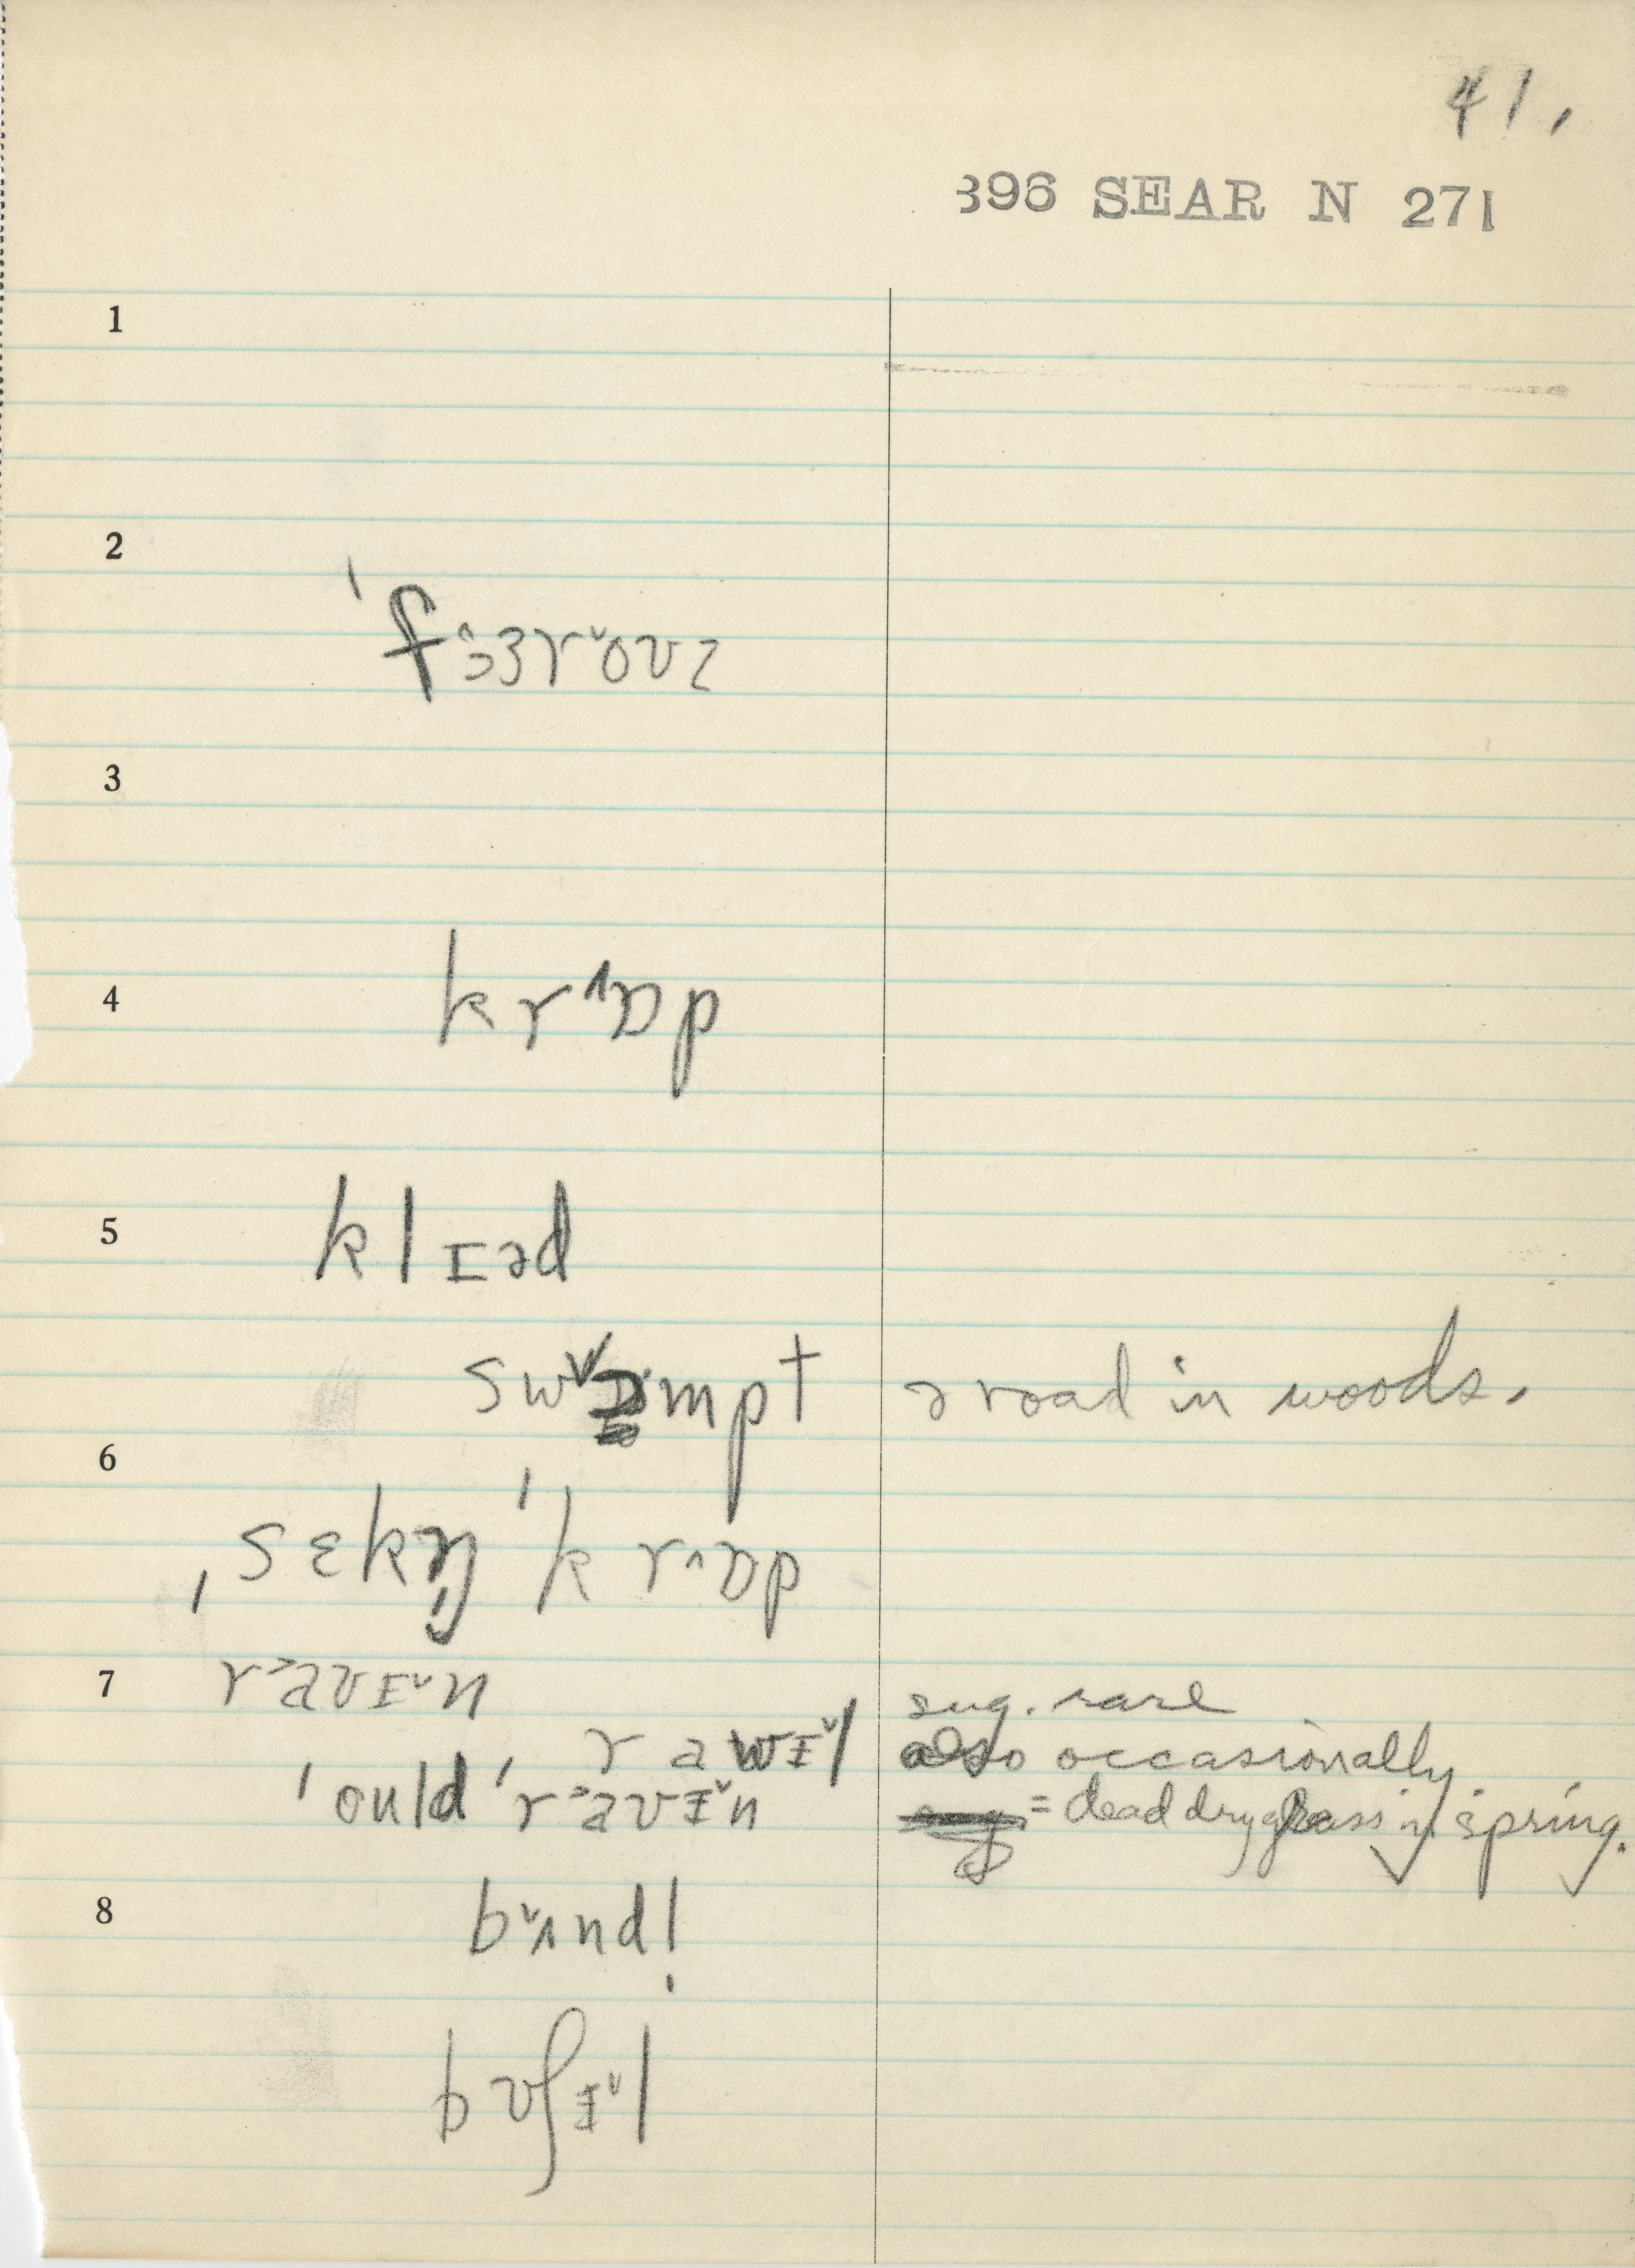 41.
396 SEAR N 271
1
2
ˈfɜ˞^ɜr˅oʊz
3
4
kr^ɒp
5
klɪəd
sw˅ɒmpt ə road in woods.
6
ˌsɛkn̩ ˈkr^ɒp
7
r˃aʊɪ˅n sug. rare
rawɪ˅l also occasionally.
ˈould ˈr˃aʊɪ˅n = dead dry grass in spring.
8
b˅ʌndl̩
bʊʃɪ˅l